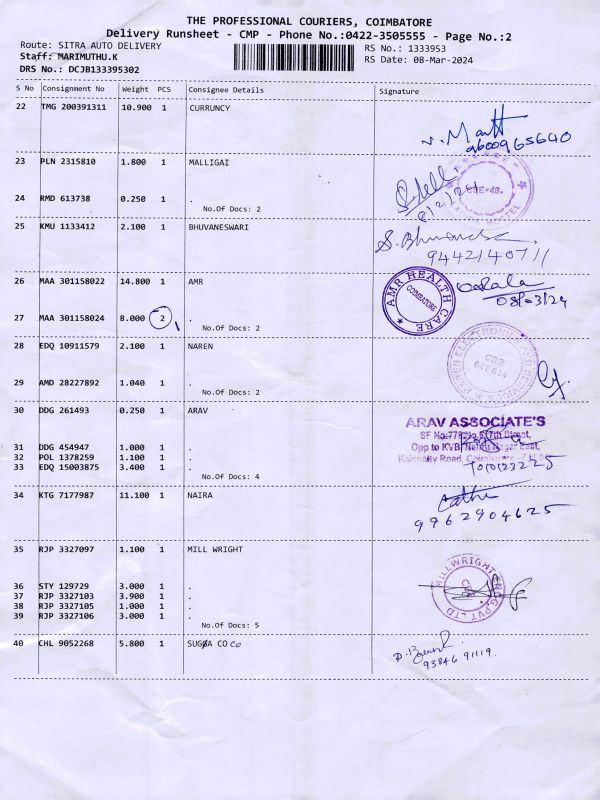 THE PROFESSIONAL COURIERS, COIMBATORE
Delivery Runsheet - CMP - Phone No.:0422-3505555 - Page No.:2
Route: SITRA AUTO DELIVERY
RS No.: 1333953
Staff: MARIMUTHU.K
RS Date: 08-Mar-2024
DRS No.: DCJB133395302
S No Consignment No Weight PCS Consignee Details Signature
22 TMG 200391311 10.900 1 CURRUNCY
9600965640
23 PLN 2315810 1.800 1 MALLIGAI
24 RMD 613738 0.250 1 .
No.Of Docs: 2
25 KMU 1133412 2.100 1 BHUVANESWARI
9442140711
26 MAA 301158022 14.800 1 AMR
AMR HEALTH CARE
COIMBATORE
08-03/24
27 MAA 301158024 8.000 2 .
No.Of Docs: 2
28 EDQ 10911579 2.100 1 NAREN
29 AMD 28227892 1.040 1 .
No.Of Docs: 2
30 DDG 261493 0.250 1 ARAV
ARAV ASSOCIATE'S
Opp to KVB, Nehru Nagar East,
Kalapatty Road,
31 DDG 454947 1.000 1 .
32 POL 1378259 1.100 1 .
33 EDQ 15003875 3.400 1 .
No.Of Docs: 4
34 KTG 7177987 11.100 1 NAIRA
9962904625
35 RJP 3327097 1.100 1 MILL WRIGHT
MILLWRIGHT ENG. PVT LTD
CBE
36 STY 129729 3.000 1 .
37 RJP 3327103 3.900 1 .
38 RJP 3327105 1.000 1 .
39 RJP 3327106 3.000 1 .
No.Of Docs: 5
40 CHL 9052268 5.800 1 CO CO
93846 91119.